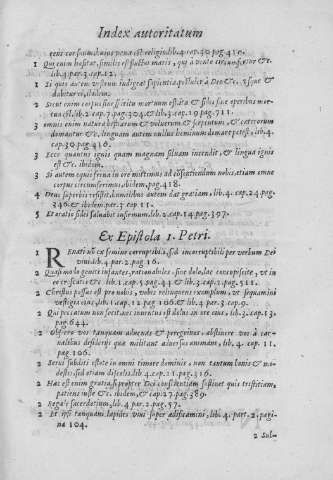 Index autoritatum
tens cor suum huius vana est religio. lib. 4. cap. 30. pag. 410.
1 Qui enim hæsitat, similis est fluctui maris, qui à vento
lib. 4. par. 3. cap. 12.
1 Si quis autem vestrum indiget sapientia, postulet à Deo &c.
dabitur ei, ibidem.
2 Sicut enim corpus sine spiritu mortuum est, ita & fides sine operibus mor-
tua est, lib. 2. cap. 7. pag. 304. & lib. 4. cap. 29. pag. 711.
3 omnis enim natura bestiarum & volucrum & serpentum, & cæterorum
domantur &c. linguam autem nullus hominum domare potest, lib. 4.
cap. 30. pag. 416.
3 Ecce quantus ignis quam magnam siluam incendit, & lingua ignis
est &c. ibidem.
3 Si autem equis frena in ore mittimus ad consentiendum nobis, etiam omne
corpus circunferimus, ibidem, pag. 418.
4 Deus superbis resistit, humilibus autem dat gratiam, lib. 4. cap. 24. pag.
346. & ibidem par. 3. cap. 11.
5 Et oratio fidei saluabit infirmum, lib. 2. cap. 14. pag. 397.
Ex Epistola 1. Petri.
1 REnati non ex semine corruptibili, sed incorruptibili per verbum Dei
viui. lib. 4. par. 2. pag. 16.
2 Quasi modo geniti infantes, rationabiles, sine dolo, lac concupiscite, vt in
eo crescatis &c. lib. 1. cap. 5. pag. 44. & lib. 3. cap. 2. pag. 511.
2 Christus passus est pro nobis, vobis relinquens exemplum, vt sequamini
vestigia eius, lib. 1. cap. 12. pag. 106. & lib. 4. par. 3. cap. 9.
2 Qui peccatum non fecit nec inuentus est dolus in ore eius, lib. 3. cap. 13.
pag. 644.
2 Obsecro vos tanquam aduenas & peregrinos, abstinere vos à car-
nalibus desiderijs quæ militant aduersus animam, lib. 4. cap. 11.
pag. 106.
2 Serui subditi estote in omni timore dominis, non tantum bonis & mo-
destis, sed etiam discolis, lib. 4. cap. 21. pag. 316.
2 Hæc est enim gratia, si propter Dei conscientiam sustinet quis tristitiam,
patiens iniuste &c. ibidem, & cap. 27. pag. 389.
2 Regale sacerdotium, lib. 4. par. 2. pag. 57.
2 Et ipsi tanquam lapides viui super ædificamini, lib. 4. par. 2. pagi-
na 104.
2 Sub-